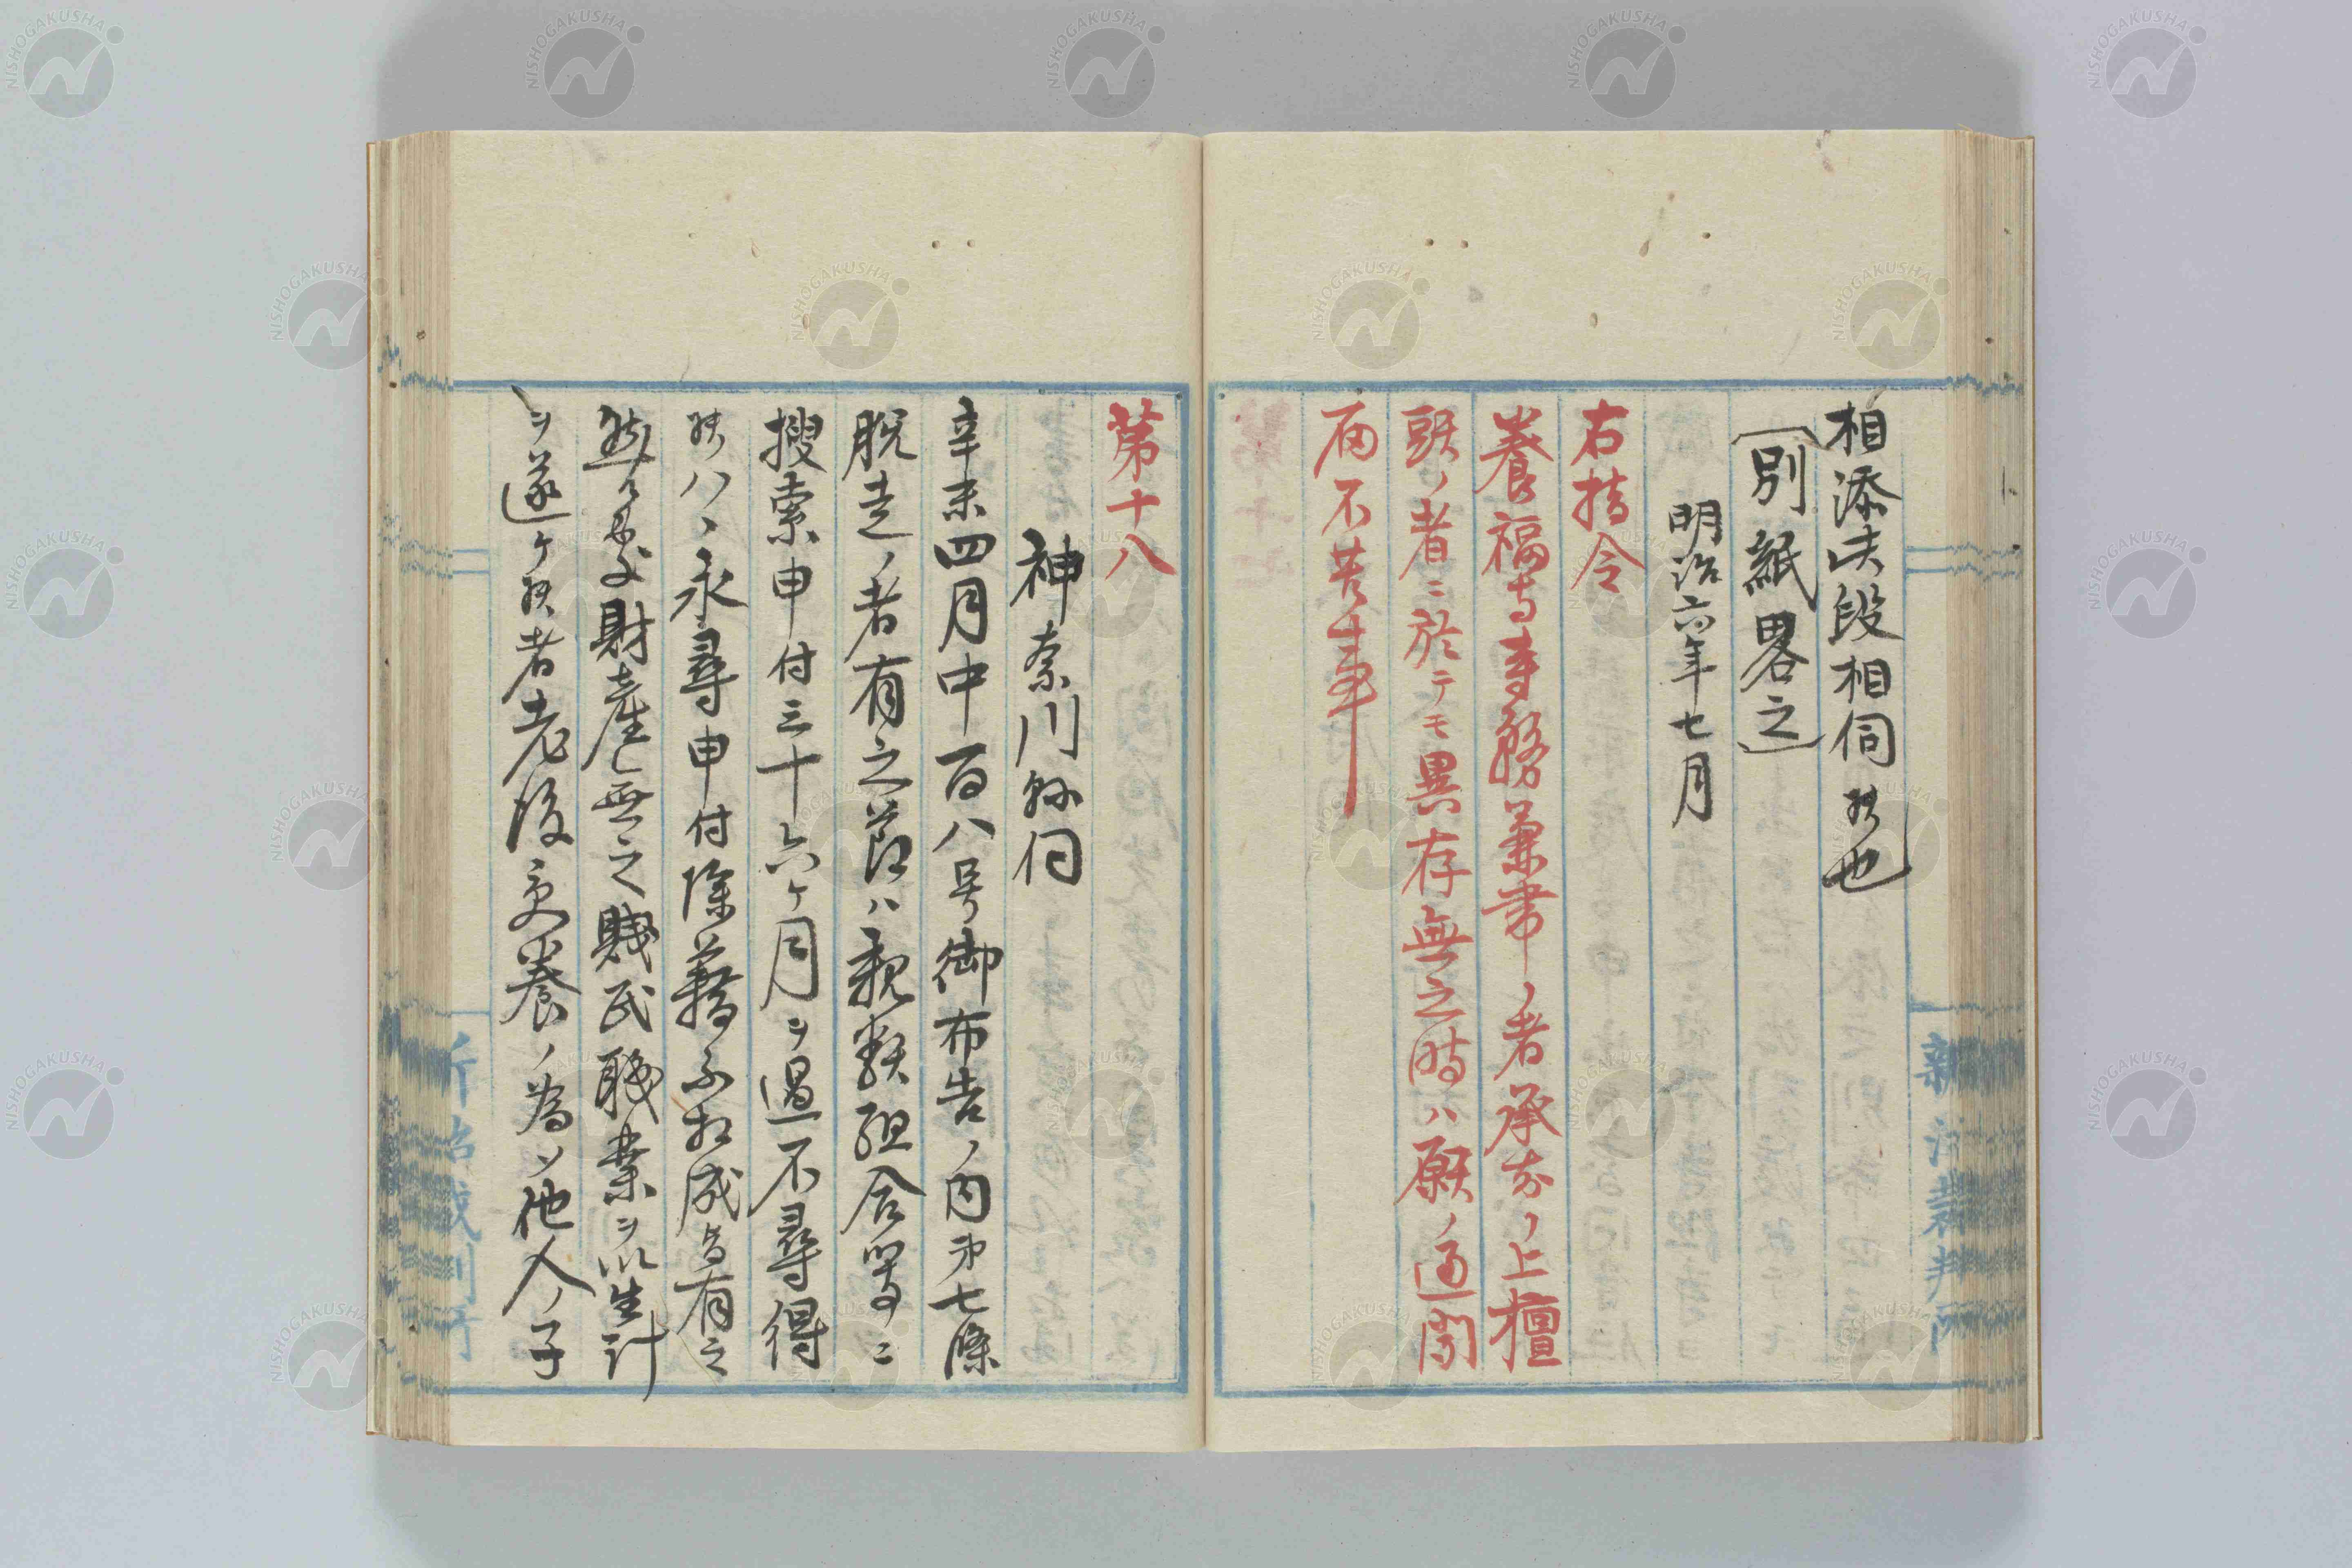 相添此段相伺候也
〔別紙畧之〕
明治六年七月
右指令
養福寺寺務兼帯ノ者承知ノ上檀
頭ノ者ニ於テモ異存無之時ハ願ノ通聞
届不苦事
第十八
神奈川縣伺
辛未四月中百八号御布告ノ内第七條
脱走ノ者有之節ハ親類組合等ニ
搜索申付三十六ケ月ヲ過不尋得
候ハヽ永尋申付除籍不相成旨有之
然ル處財産無之賤民職業ヲ以生計
ヲ遂ケ候者老後受養ノ為メ他人ノ子